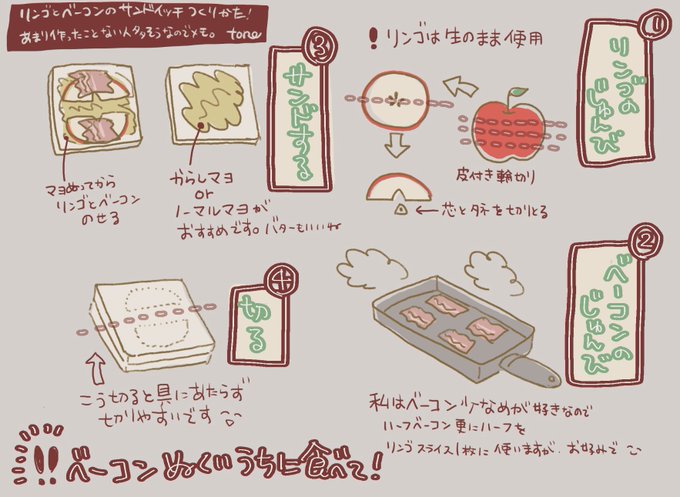 リンゴとベーコンのサンドイッチつくりかた！
あまり作ったことない人多そうなのでメモ。 tone
①
リンゴの
じゅんび
！リンゴは生のまま使用
皮付き輪切り
←芯とタネを切りとる
②
ベーコンの
じゅんび
私はベーコン少なめが好きなので
ハーフベーコン更にハーフを
リンゴスライス1枚に使いますが、お好みで
③
サンドする
からしマヨ
or
ノーマルマヨが
おすすめです。バターもいいね
マヨぬってから
リンゴとベーコン
のせる
④
切る
こう切ると具にあたらず
切りやすいです
!!ベーコンぬくいうちに食べて！